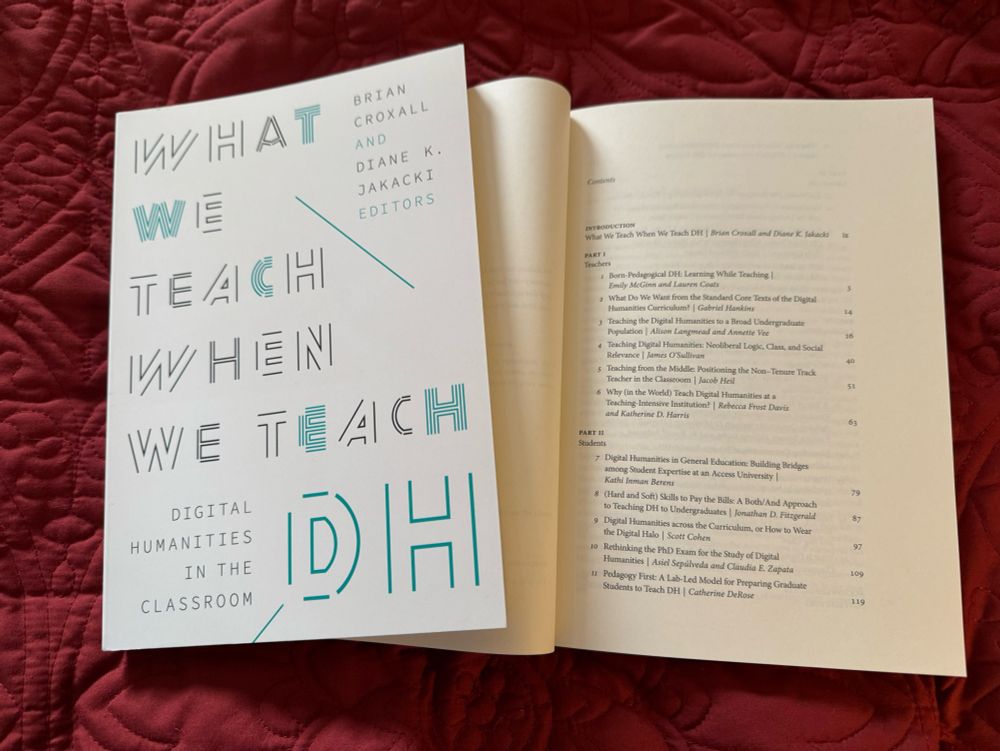 WHAT
WE
TEACH
WHEN
WE TEACH
DH
BRIAN
CROXALL
AND
DIANE K.
JAKACKI
EDITORS
DIGITAL
HUMANITIES
IN THE
CLASSROOM
Contents
INTRODUCTION
What We Teach When We Teach DH | Brian Croxall and Diane K. Jakacki ix
PART I
Teachers
1 Born-Pedagogical DH: Learning While Teaching |
Emily McGinn and Lauren Coats 3
2 What Do We Want from the Standard Core Texts of the Digital
Humanities Curriculum? | Gabriel Hankins 14
3 Teaching the Digital Humanities to a Broad Undergraduate
Population | Alison Langmead and Annette Vee 26
4 Teaching Digital Humanities: Neoliberal Logic, Class, and Social
Relevance | James O'Sullivan 40
5 Teaching from the Middle: Positioning the Non–Tenure Track
Teacher in the Classroom | Jacob Heil 52
6 Why (in the World) Teach Digital Humanities at a
Teaching-Intensive Institution? | Rebecca Frost Davis
and Katherine D. Harris 63
PART II
Students
7 Digital Humanities in General Education: Building Bridges
among Student Expertise at an Access University |
Kathi Inman Berens 79
8 (Hard and Soft) Skills to Pay the Bills: A Both/And Approach
to Teaching DH to Undergraduates | Jonathan D. Fitzgerald 87
9 Digital Humanities across the Curriculum, or How to Wear
the Digital Halo | Scott Cohen 97
10 Rethinking the PhD Exam for the Study of Digital
Humanities | Asiel Sepúlveda and Claudia E. Zapata 109
11 Pedagogy First: A Lab-Led Model for Preparing Graduate
Students to Teach DH | Catherine DeRose 119